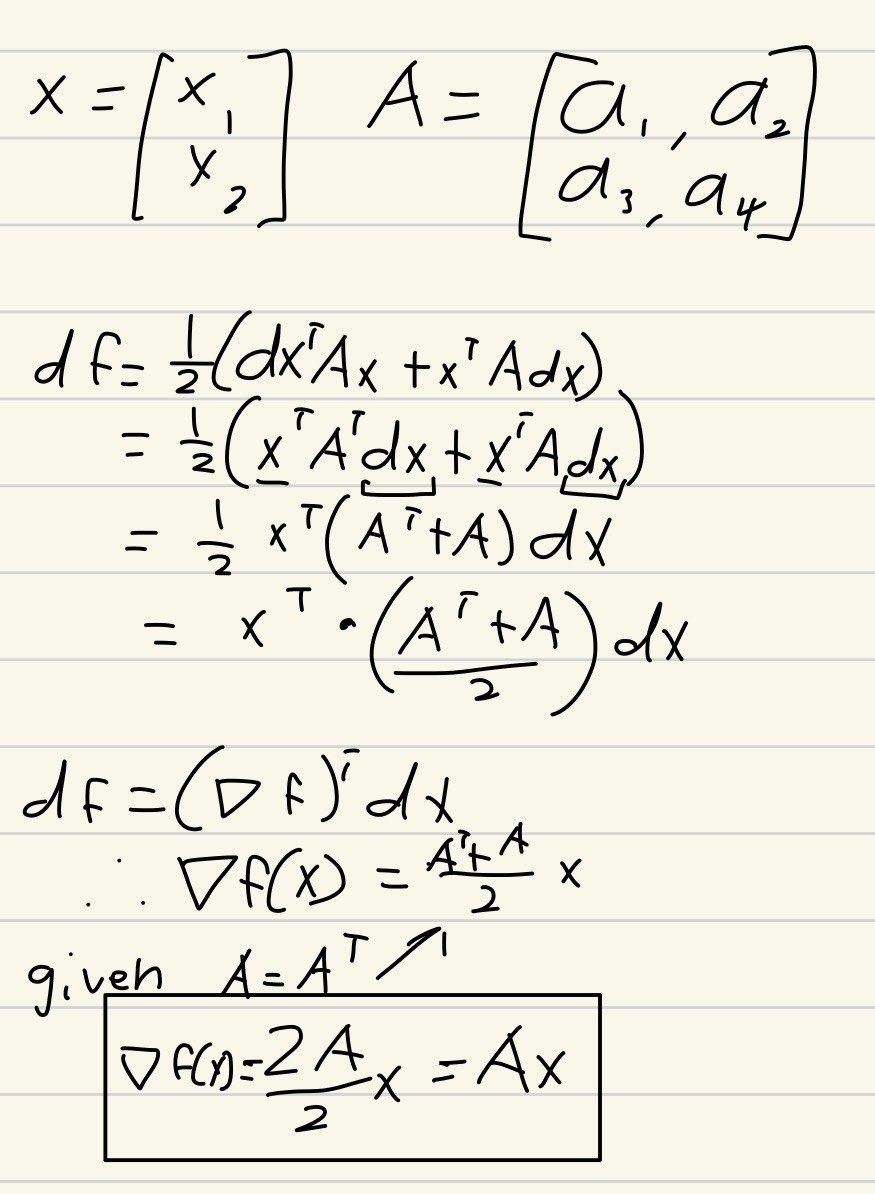 x = [x₁ x₂] A = [a₁, a₂
a₃, a₄]
df = 1/2 (dxᵀAx + xᵀAdx)
= 1/2 (xᵀAᵀdx + xᵀAdx)
= 1/2 xᵀ(Aᵀ+A)dx
= xᵀ · ((Aᵀ+A)/2) dx
df = (∇f)ᵀdx
∴ ∇f(x) = (Aᵀ+A)/2 x
given A = Aᵀ ↗
∇f(x) = 2A/2 x = Ax